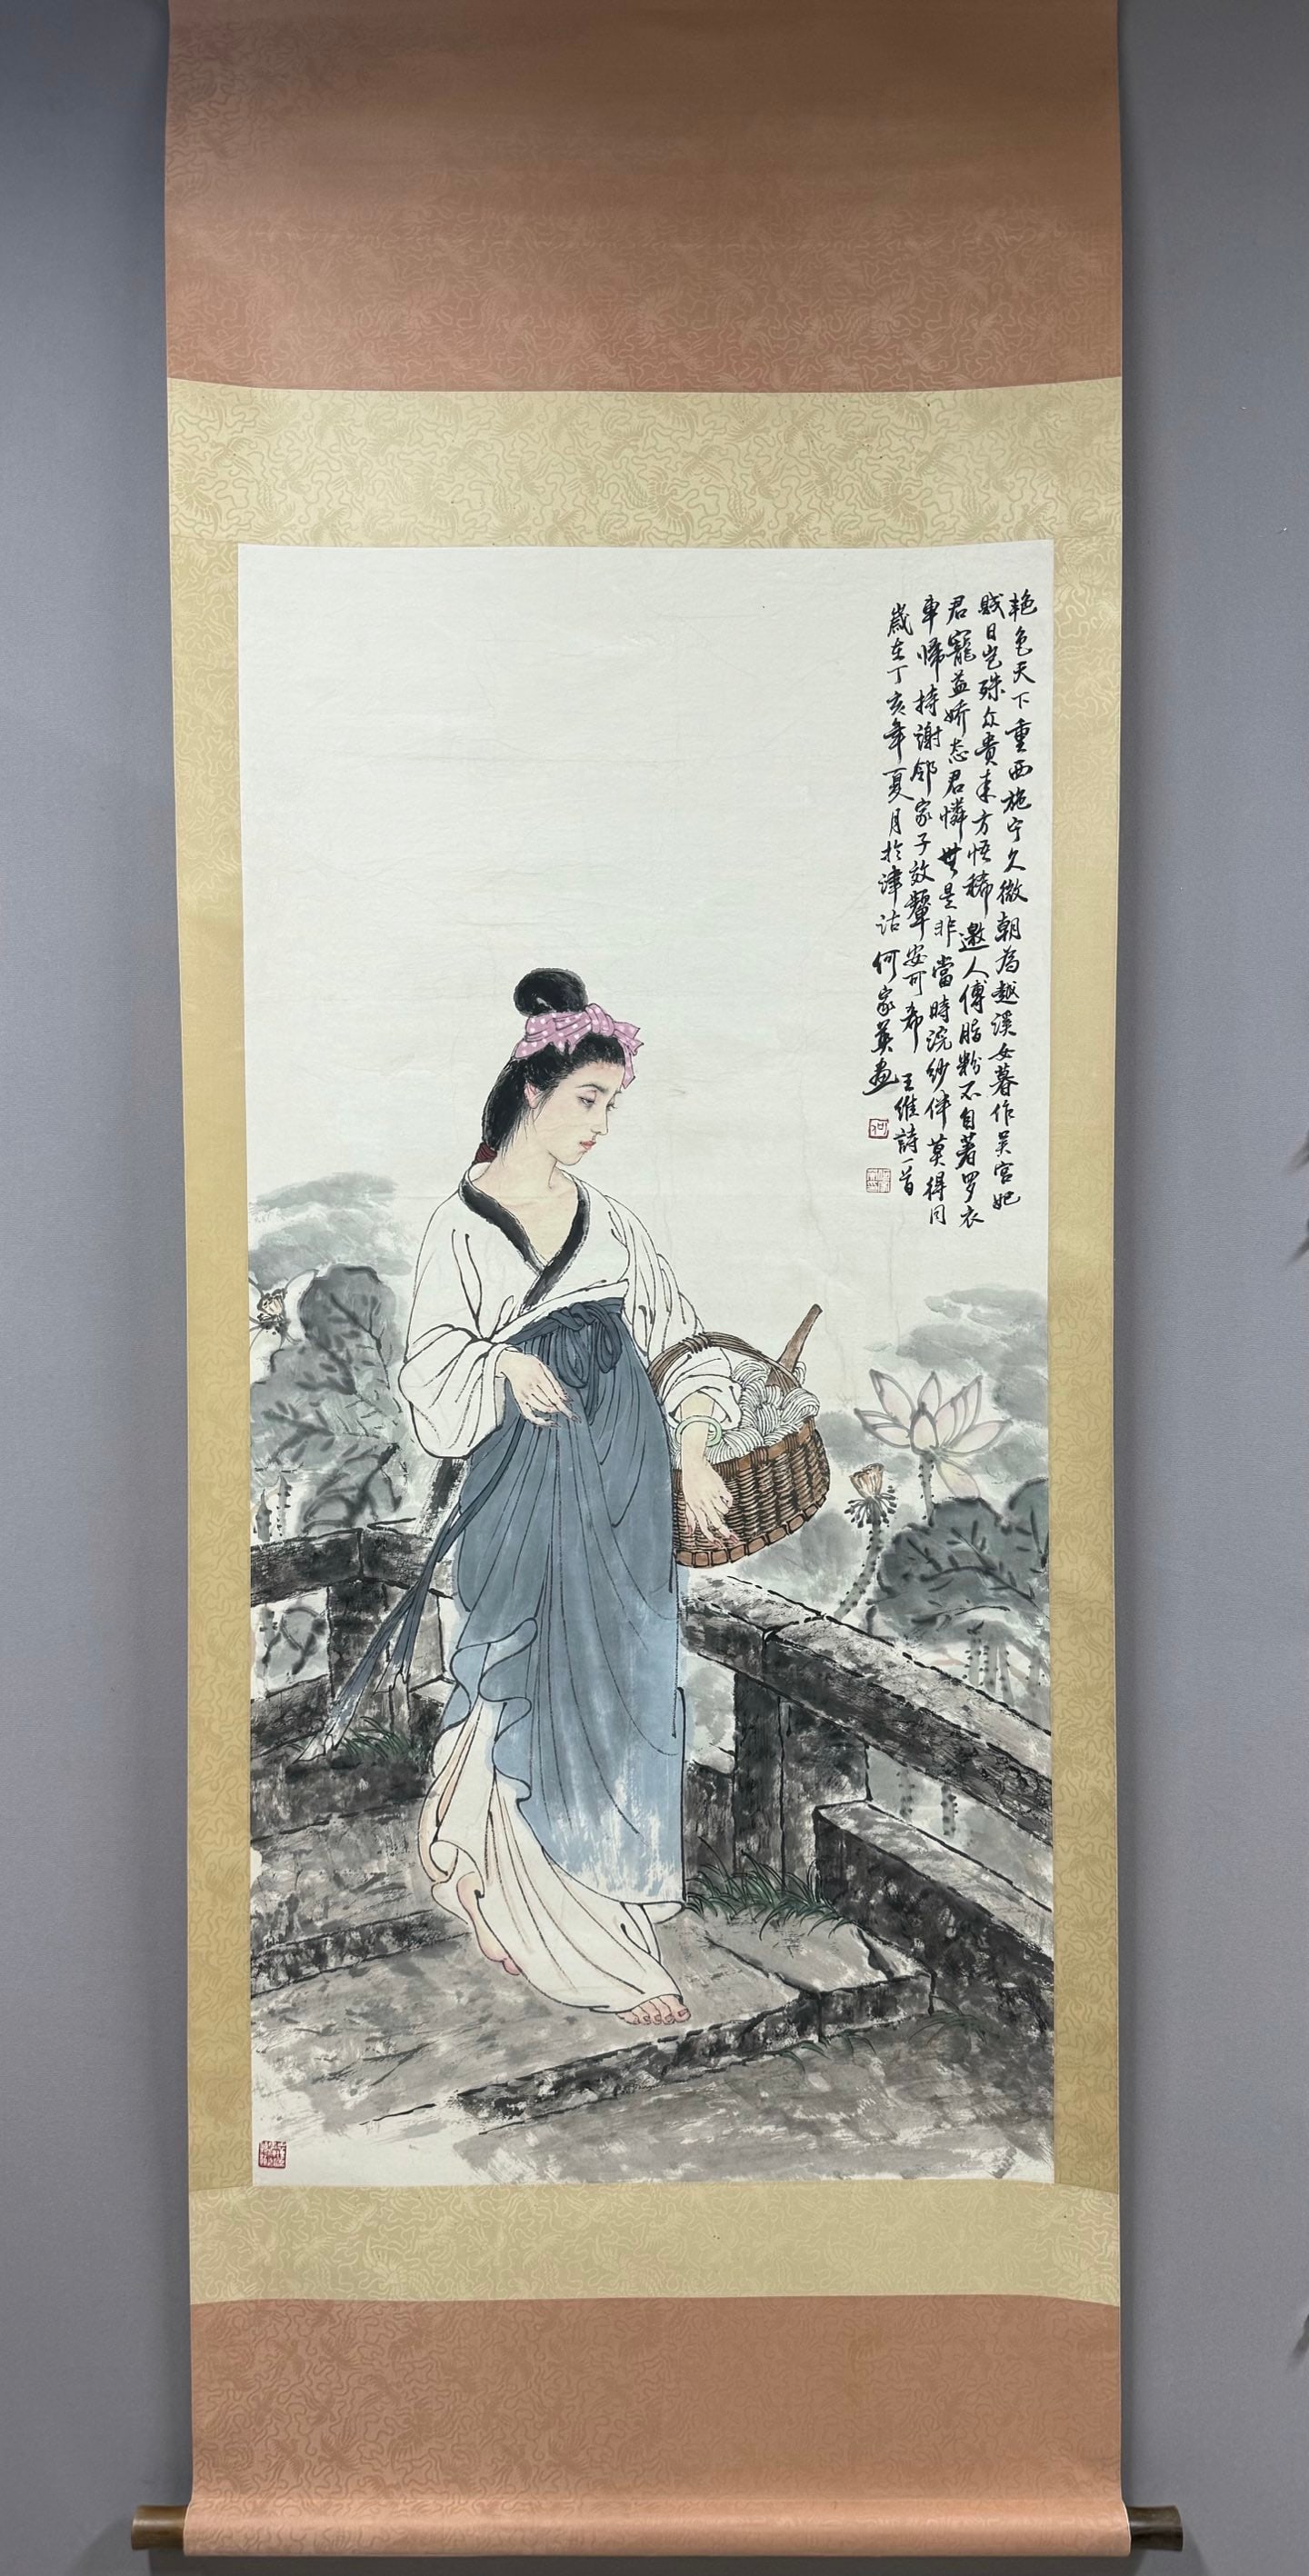 艳色天下重西施宁久微朝为越溪女暮作吴宫妃
贱日岂殊众贵来方悟稀邀人傅脂粉不自著罗衣
君寵益娇态君憐無是非當時浣纱伴莫得同
車歸持謝邻家子效颦安可希 王維詩一首
歲在丁亥年夏月於津沽 何家英画